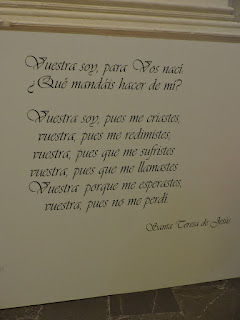 Vuestra soy, para Vos nací.
¿Qué mandáis hacer de mí?
Vuestra soy, pues me criastes,
vuestra, pues me redimistes,
vuestra, pues que me sufristes
vuestra, pues que me llamastes
Vuestra porque me esperastes,
vuestra, pues no me perdí.
Santa Teresa de Jesús